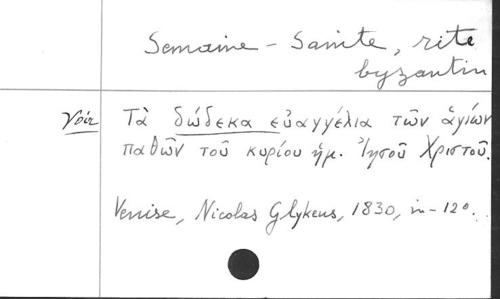 Semaine - Sainte, rite
byzantin
Voir Τὰ δώδεκα εὐαγγέλια τῶν ἁγίων
παθῶν τοῦ κυρίου ἡμ. Ἰησοῦ Χριστοῦ.
Venise, Nicolas Glykeus, 1830, in-12°.